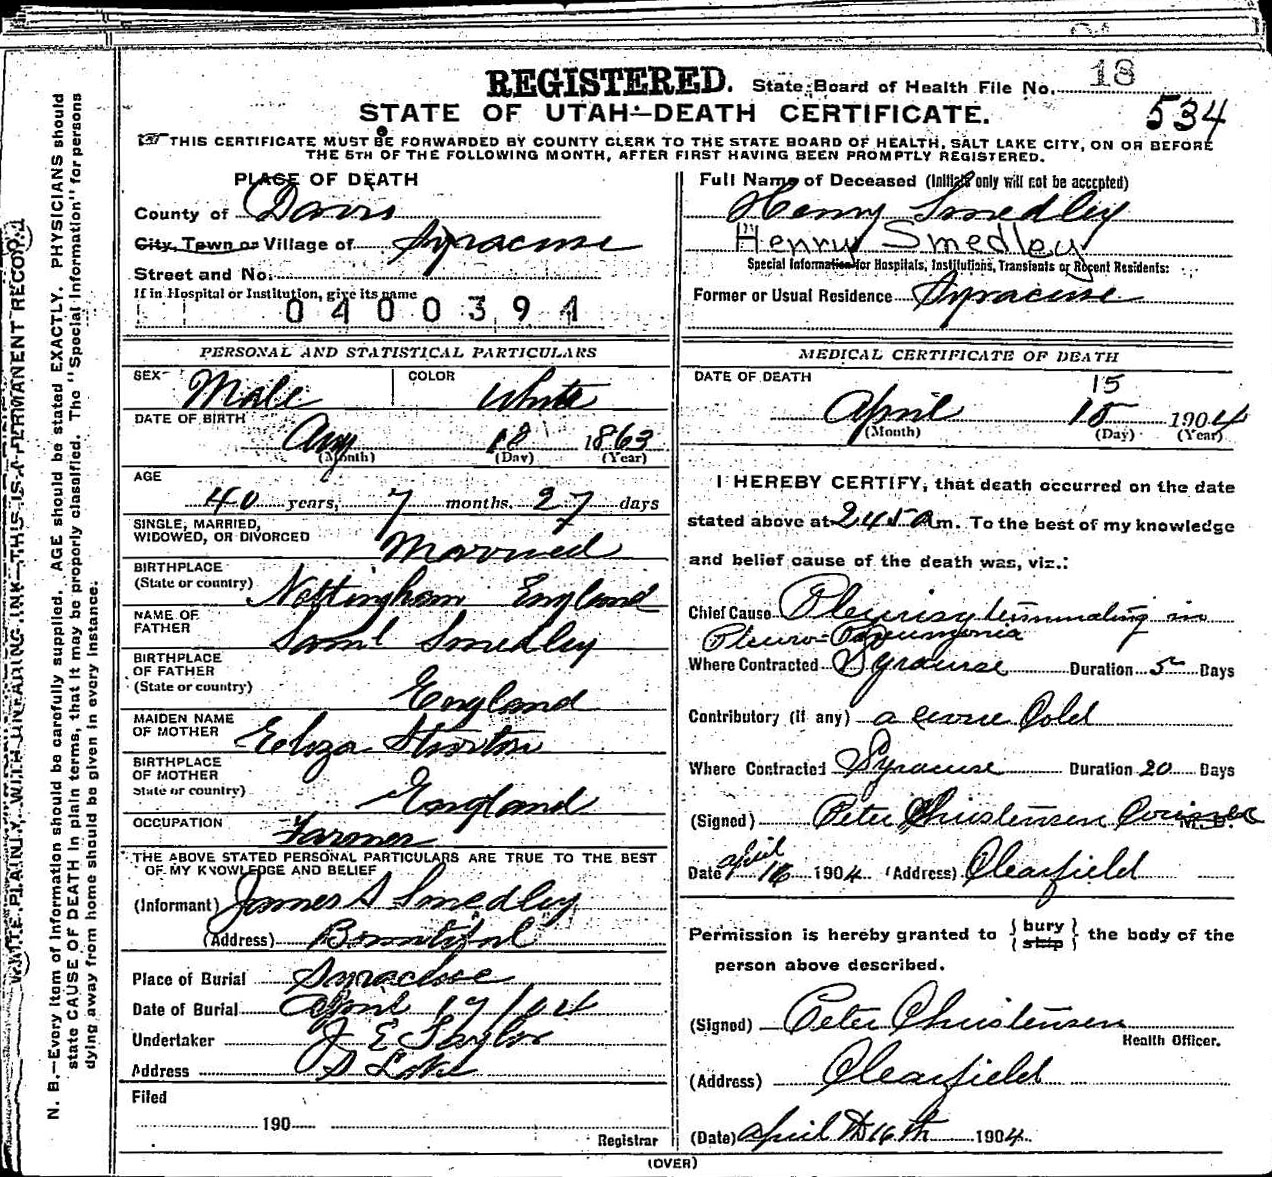 REGISTERED. State Board of Health File No. 18
STATE OF UTAH—DEATH CERTIFICATE. 534
THIS CERTIFICATE MUST BE FORWARDED BY COUNTY CLERK TO THE STATE BOARD OF HEALTH, SALT LAKE CITY, ON OR BEFORE
THE 5TH OF THE FOLLOWING MONTH, AFTER FIRST HAVING BEEN PROMPTLY REGISTERED.
PLACE OF DEATH
County of Davis
City, Town or Village of Syracuse
Street and No.
If in Hospital or Institution, give its name
0400391
Full Name of Deceased (Initials only will not be accepted)
Henry Smedley
Henry Smedley
Special Information for Hospitals, Institutions, Transients or Recent Residents:
Former or Usual Residence Syracuse
PERSONAL AND STATISTICAL PARTICULARS
SEX Male COLOR White
DATE OF BIRTH
Aug 18 1863
(Month) (Day) (Year)
AGE
40 years, 7 months. 27 days
SINGLE, MARRIED,
WIDOWED, OR DIVORCED Married
BIRTHPLACE
(State or country) Nottingham England
NAME OF
FATHER Saml Smedley
BIRTHPLACE
OF FATHER
(State or country) England
MAIDEN NAME
OF MOTHER Eliza
BIRTHPLACE
OF MOTHER
State or country) England
OCCUPATION Farmer
THE ABOVE STATED PERSONAL PARTICULARS ARE TRUE TO THE BEST
OF MY KNOWLEDGE AND BELIEF
(Informant) James S Smedley
(Address) Bountiful
Place of Burial Syracuse
Date of Burial April 17 1904
Undertaker J E Taylor
Address S Lake
Filed
190
Registrar
MEDICAL CERTIFICATE OF DEATH
DATE OF DEATH 15
April 15 1904
(Month) (Day) (Year)
I HEREBY CERTIFY, that death occurred on the date
stated above at 245 Am. To the best of my knowledge
and belief cause of the death was, viz.:
Chief Cause Pleurisy terminating in
Pleuro-Pneumonia
Where Contracted Syracuse Duration 5 Days
Contributory (if any) a Cold
Where Contracted Syracuse Duration 20 Days
(Signed) Peter Christensen M. D.
Date April 16 1904 (Address) Clearfield
Permission is hereby granted to {bury
ship} the body of the
person above described.
(Signed) Peter Christensen
Health Officer.
(Address) Clearfield
(Date) April 16th 1904
(OVER)
N. B.—Every item of information should be carefully supplied. AGE should be stated EXACTLY. PHYSICIANS should
state CAUSE OF DEATH in plain terms, that it may be properly classified. The "Special Information" for persons
dying away from home should be given in every instance.
WRITE PLAINLY, WITH UNFADING INK—THIS IS A PERMANENT RECORD.